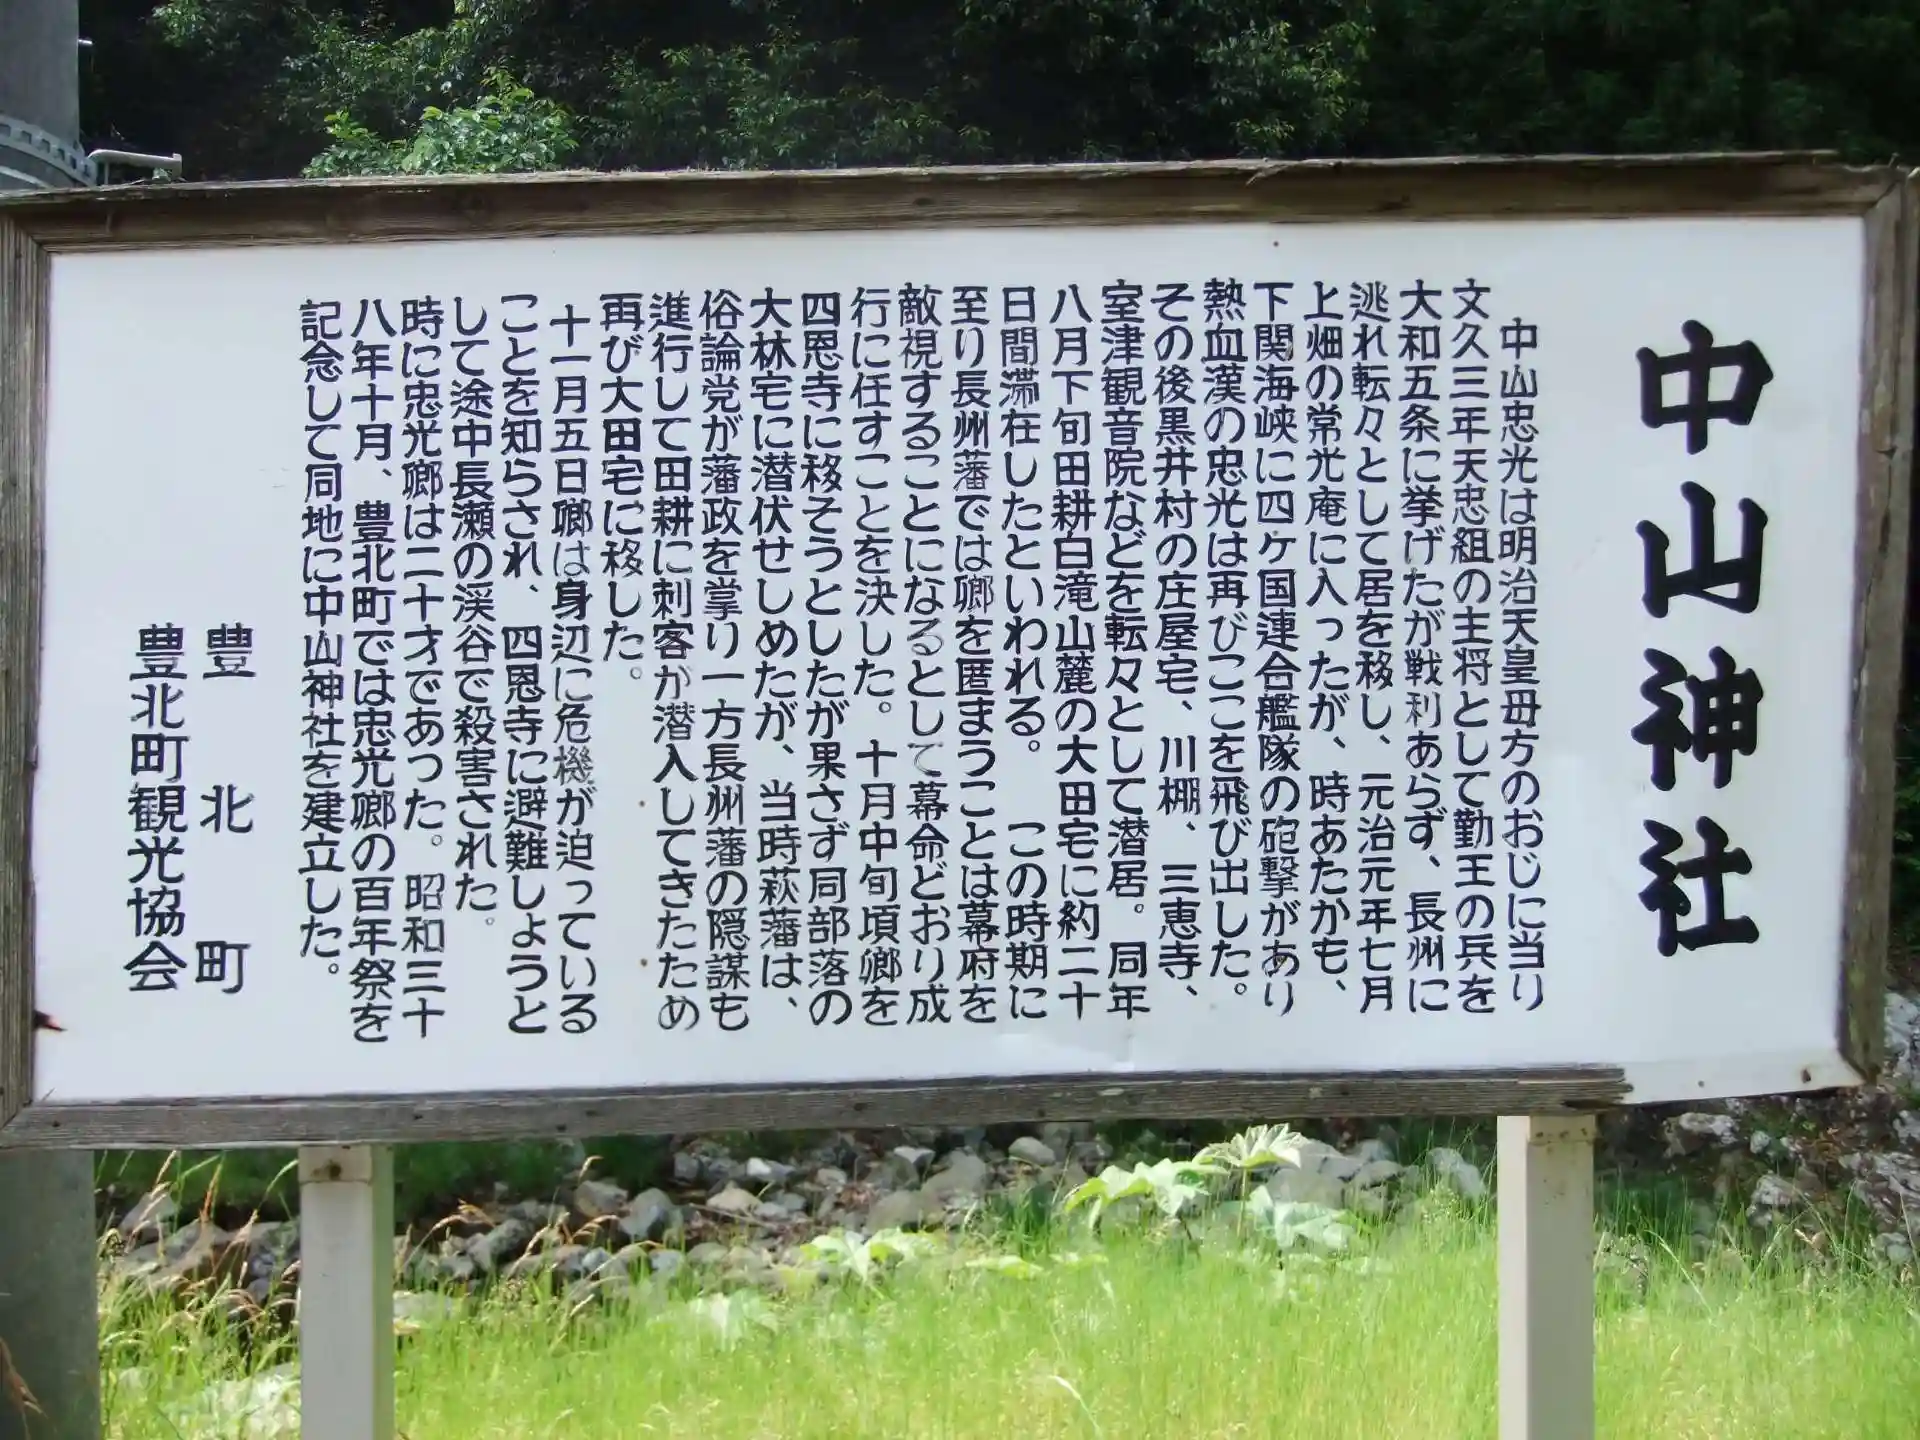 中山神社
中山忠光は明治天皇母方のおじに当り
文久三年天忠組の主将として勤王の兵を
大和五条に挙げたが戦利あらず、長州に
逃れ転々として居を移し、元治元年七月
上畑の常光庵に入ったが、時あたかも、
下関海峡に四ケ国連合艦隊の砲撃があり
熱血漢の忠光は再びここを飛び出した。
その後黒井村の庄屋宅、川棚、三恵寺、
室津観音院などを転々として潜居。同年
八月下旬田耕白滝山麓の大田宅に約二十
日間滞在したといわれる。この時期に
至り長州藩では卿を匿まうことは幕府を
敵視することになるとして幕命どおり成
行に任すことを決した。十月中旬頃卿を
四恩寺に移そうとしたが果さず同部落の
大林宅に潜伏せしめたが、当時萩藩は、
俗論党が藩政を掌り一方長州藩の隠謀も
進行して田耕に刺客が潜入してきたため
再び大田宅に移した。
十一月五日卿は身辺に危機が迫っている
ことを知らされ、四恩寺に避難しようと
して途中長瀬の渓谷で殺害された。
時に忠光卿は二十才であった。昭和三十
八年十月、豊北町では忠光卿の百年祭を
記念して同地に中山神社を建立した。
豊北町
豊北町観光協会